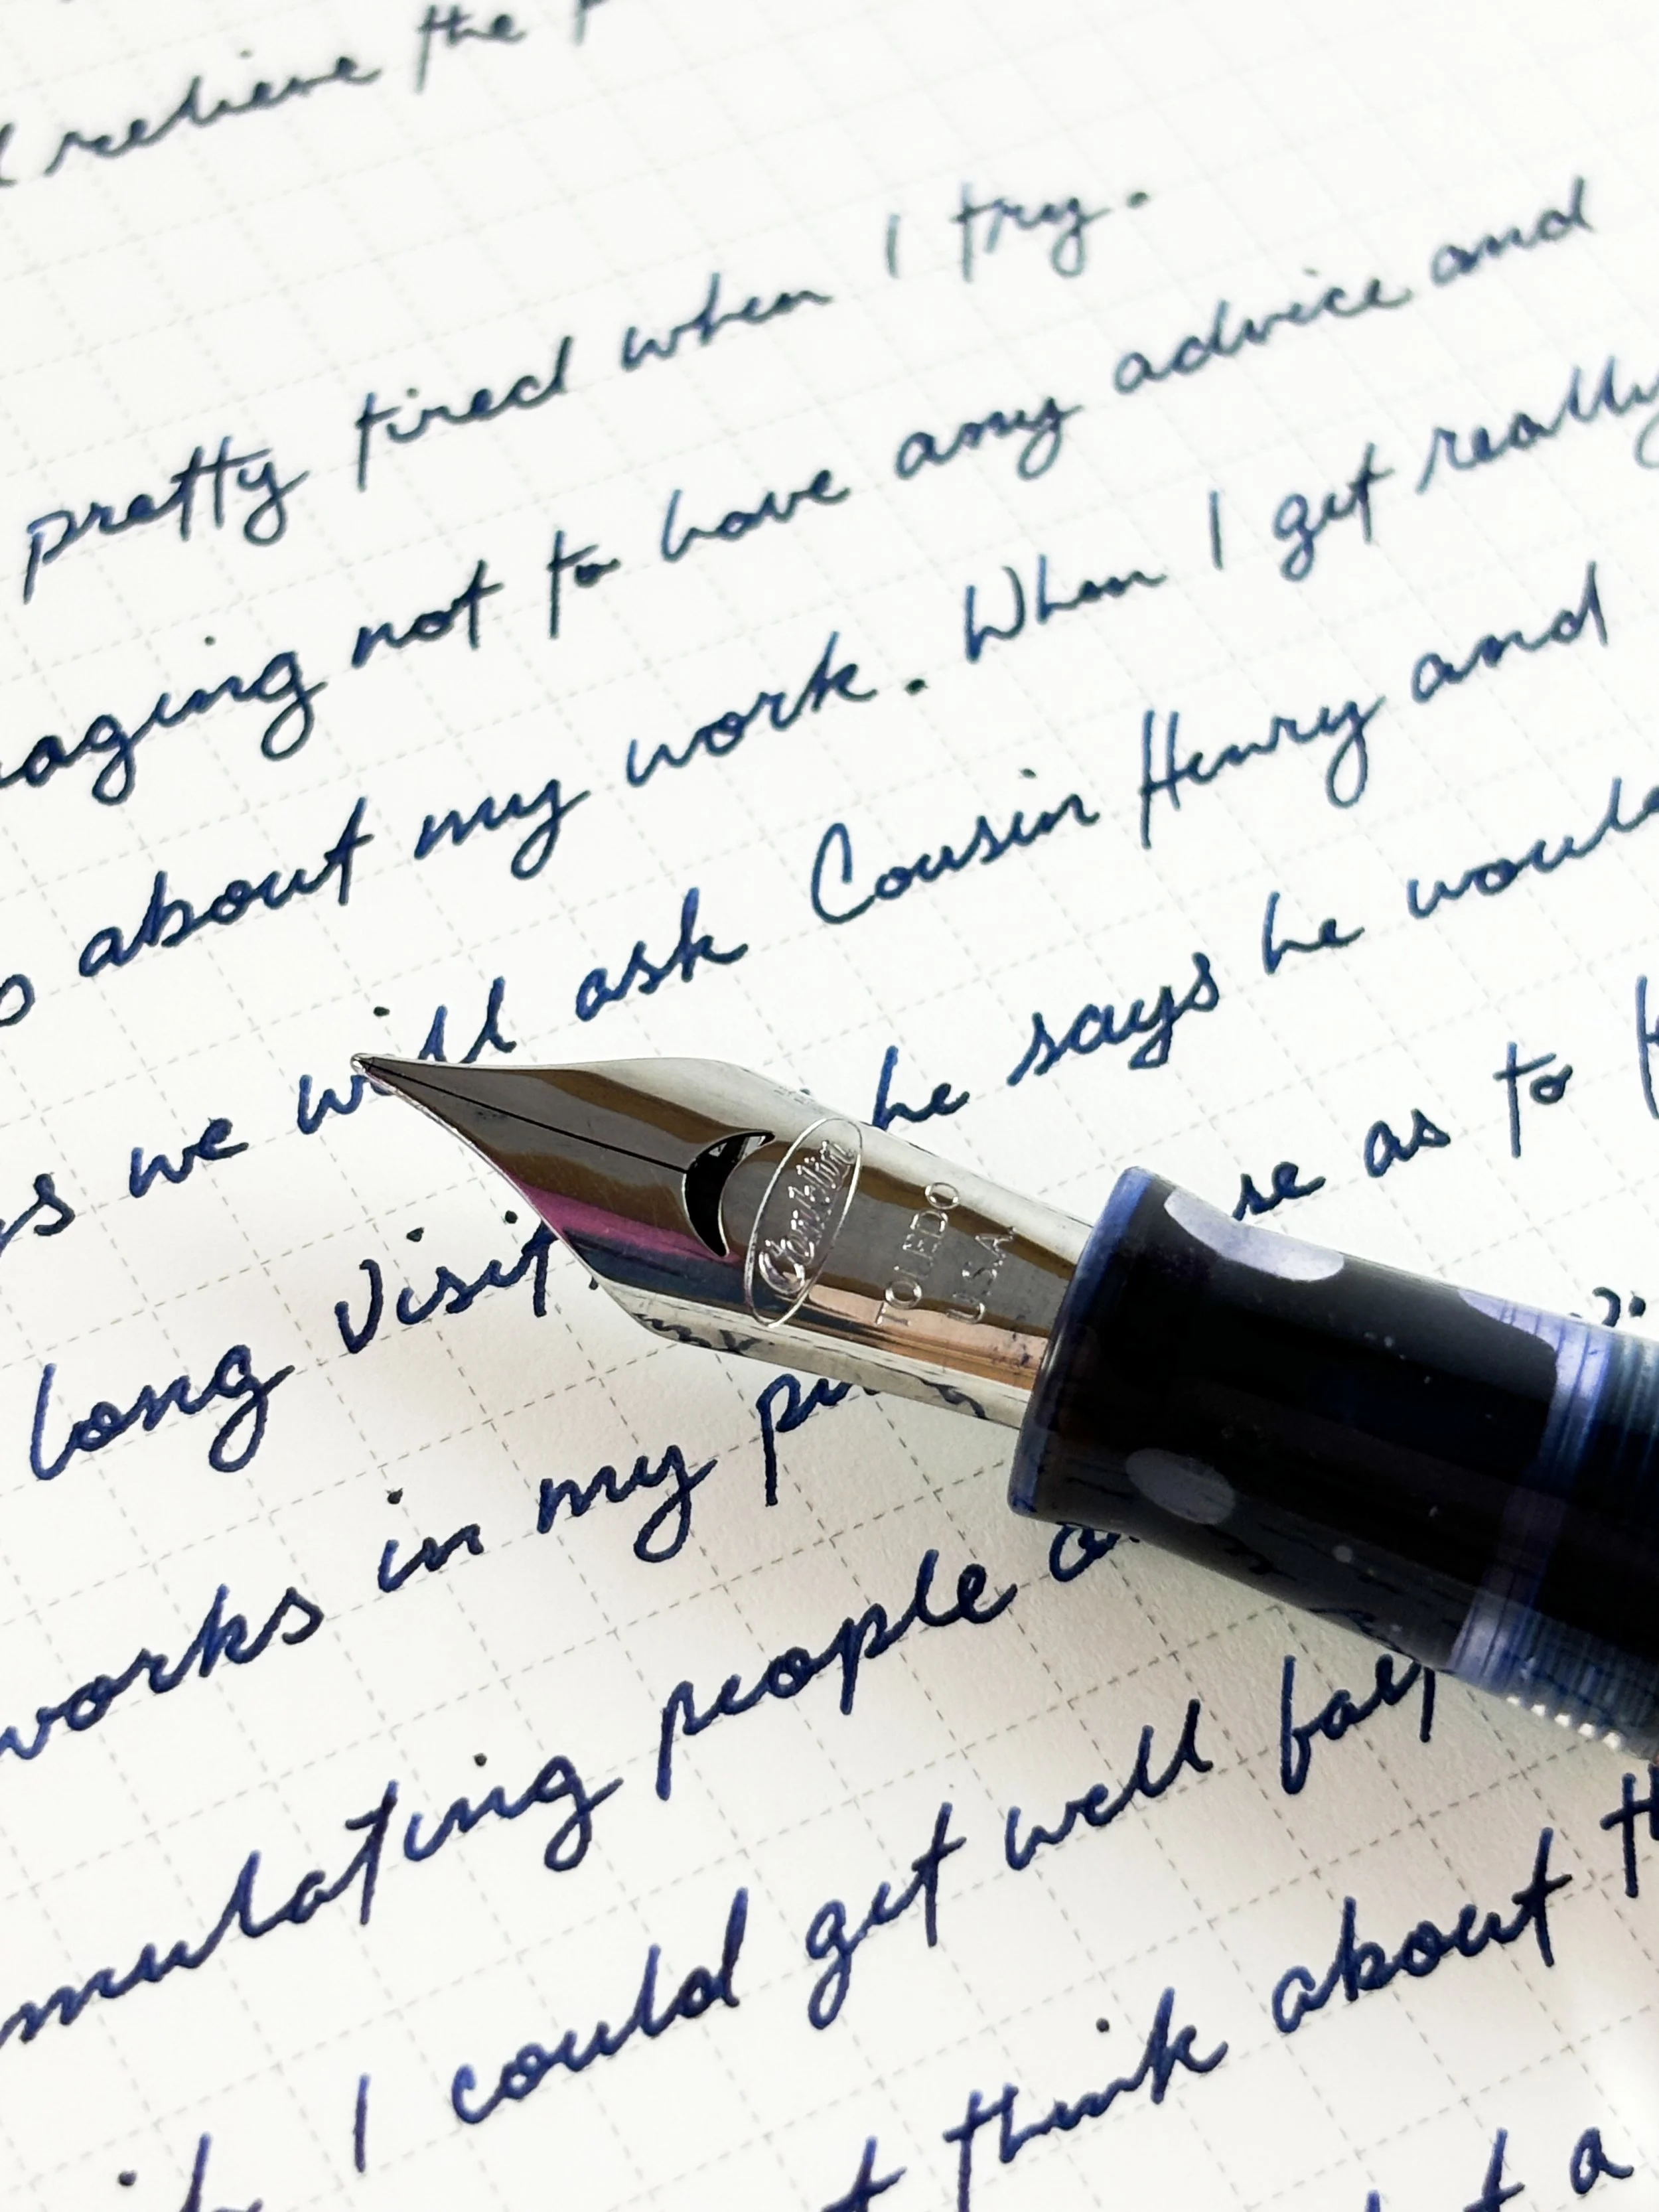 relieve the
pretty tired when I try.
aging not to have any advice and
about my work. When I get really
we will ask Cousin Henry and
long visit, he says he would
works in my se as to
mulating people
I could get well fas
think about
a
Conklin
TOLEDO
U.S.A.